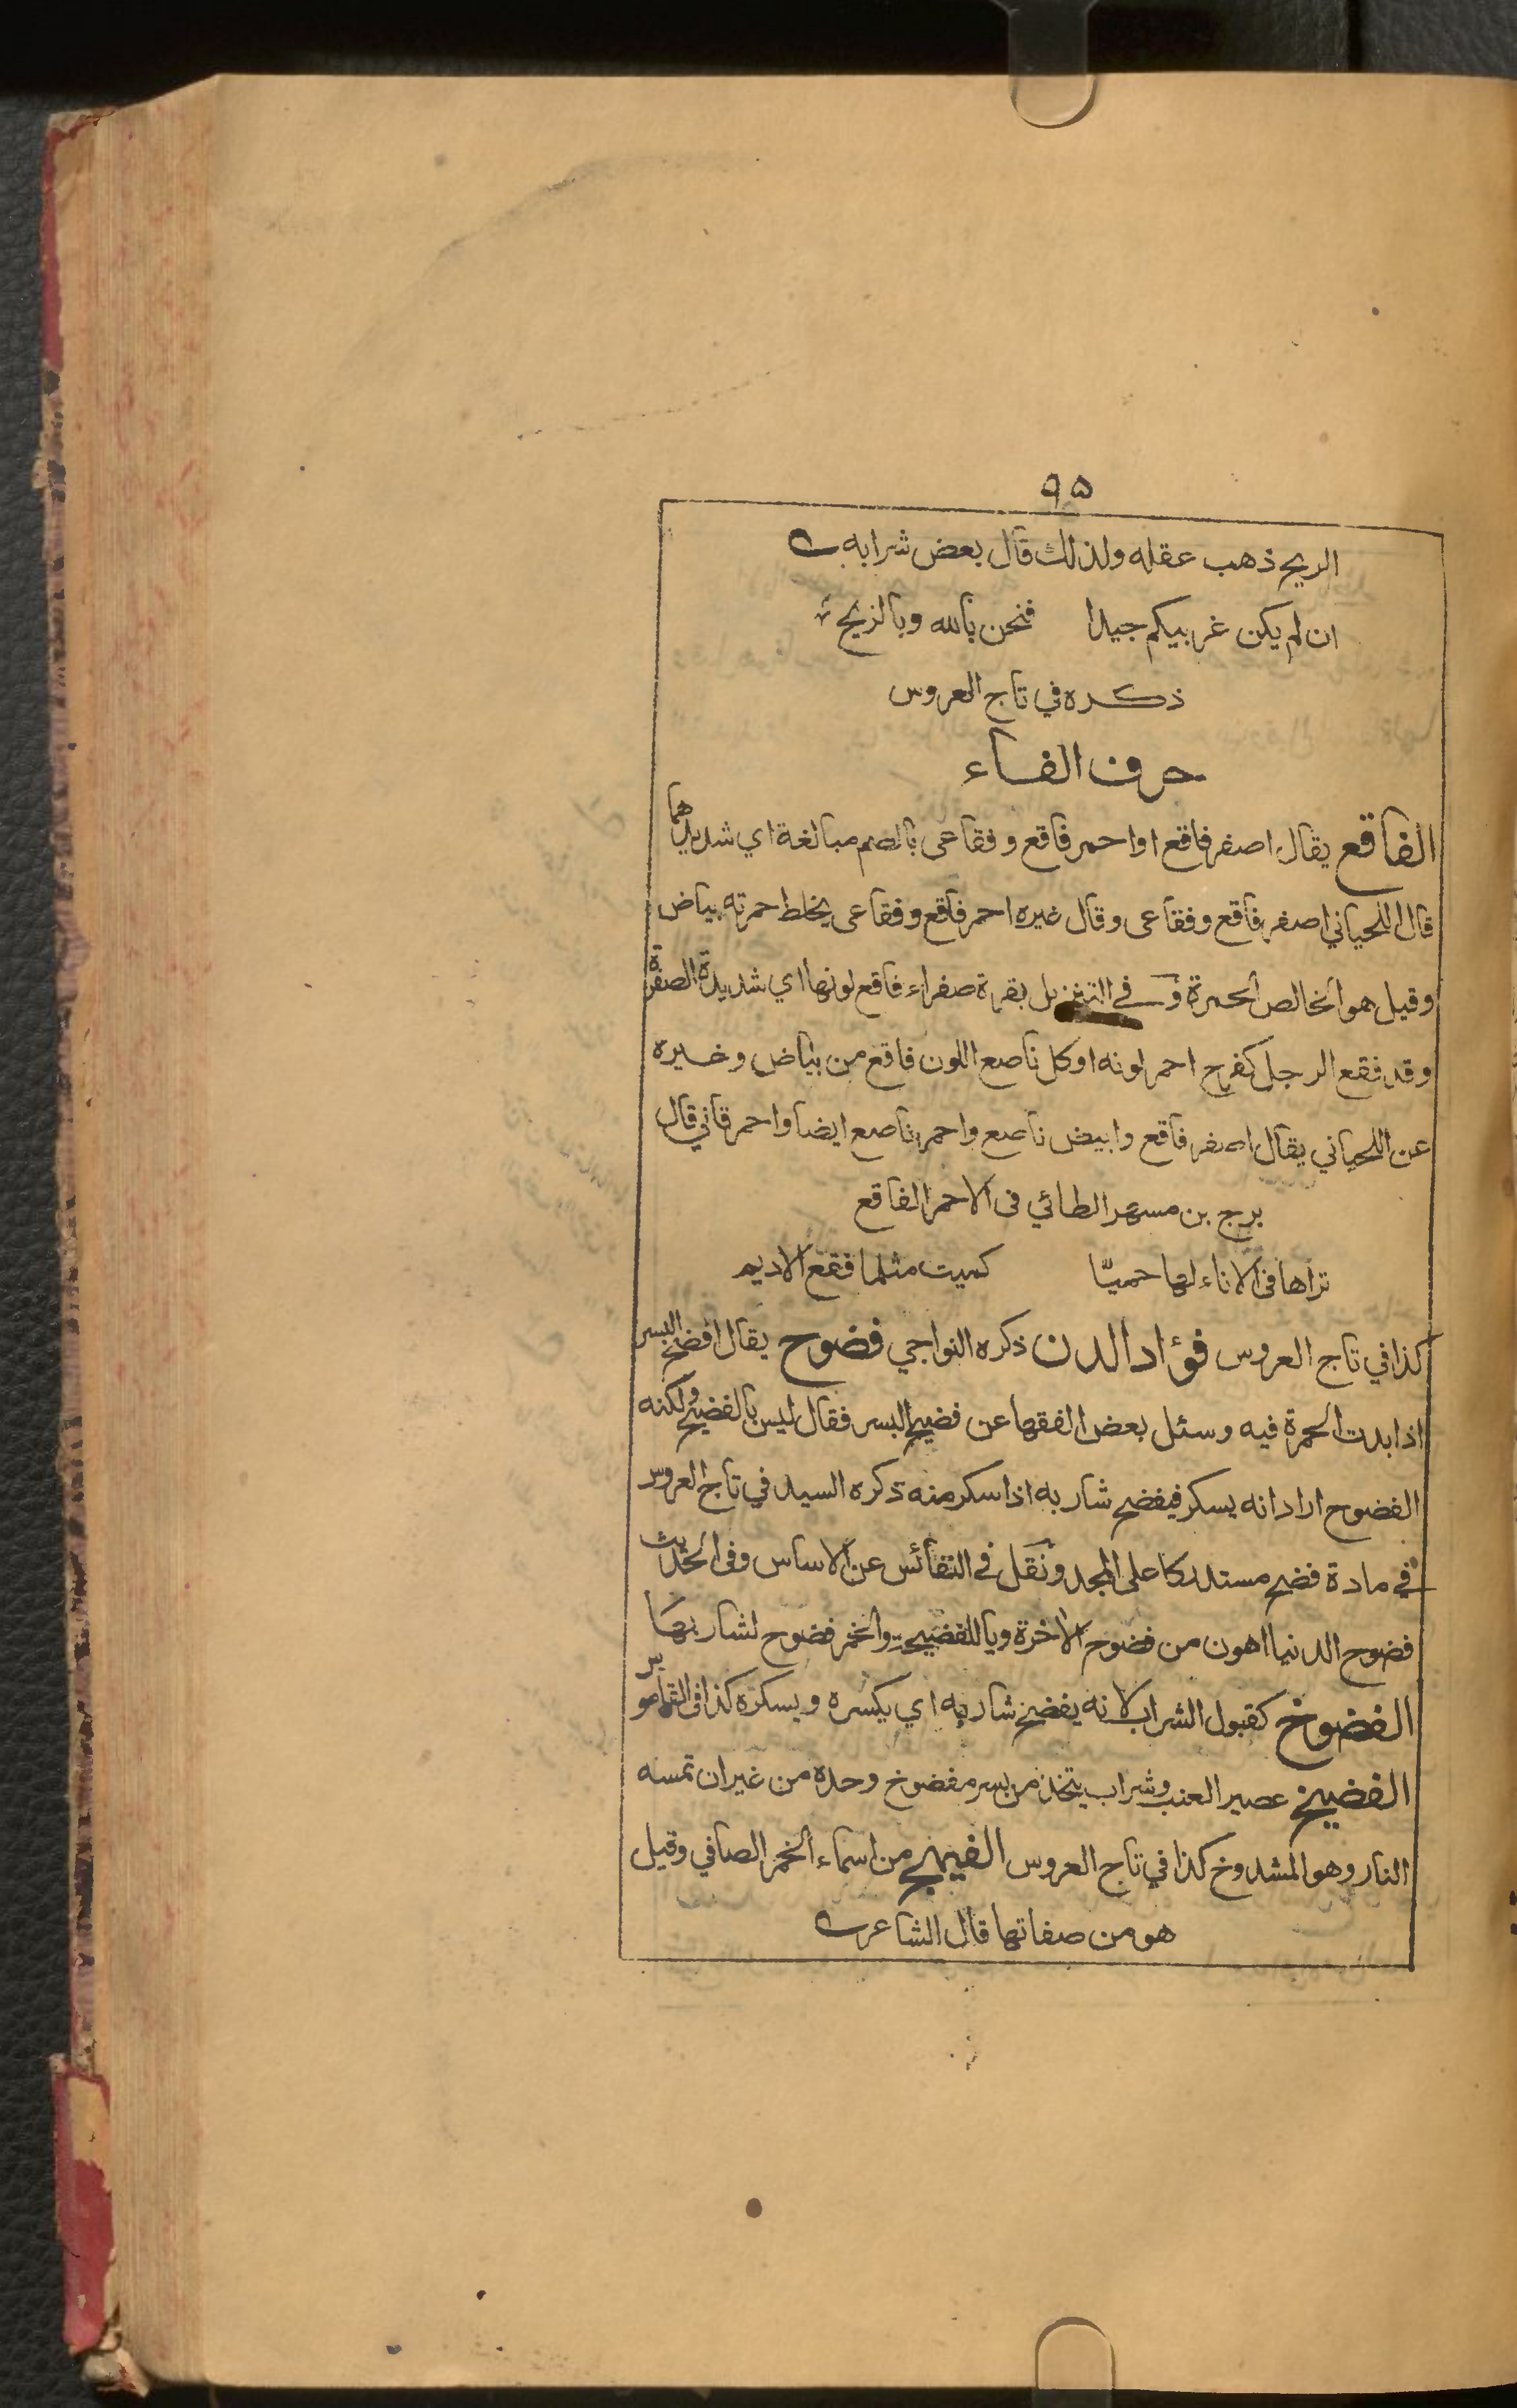 ٩٥
الريح ذهب عقله ولذلك قال بعض شرابه
ان لم يكن غربيكم جيدا فنحن بالله وبالريح
ذكره في تاج العروس
حرف الفاء
الفاقع يقال اصفر فاقع او احمر فاقع وفقاعي بالضم مبالغة اي شديدهما
قال اللحياني اصفر فاقع وفقاعي وقال غيره احمر فاقع وفقاعي يخلط حمرته بياض
وقيل هو الخالص الحمرة و في التنزيل بقرة صفراء فاقع لونها اي شديدة الصفرة
وقد فقع الرجل كفرح احمر لونه او كل ناصع اللون فاقع من بياض وغيره
عن اللحياني يقال اصفر فاقع وابيض ناصع واحمر ناصع ايضا واحمر قاني قال
برج بن مسهر الطائي في الاحمر الفاقع
تراها في الاناء لها حميّا كميت مثلما فقع الاديم
كذا في تاج العروس فؤاد الدن ذكره النواجي فضوح يقال افضح البسر
اذا بدت الحمرة فيه وسئل بعض الفقها عن فضيح البسر فقال ليس بالفضيح ولكنه
الفضوح اراد انه يسكر فيفضح شاربه اذا سكر منه ذكره السيد في تاج العروس
في مادة فضح مستدركا على المجد ونقل في النفائس عن الاساس وفي الحديث
فضوح الدنيا اهون من فضوح الاخرة ويا للفضيحة والخمر فضوح لشاربها
الفضوخ كقبول الشراب لانه يفضخ شاربه اي يكسره ويسكره كذا في القاموس
الفضيخ عصير العنب وشراب يتخذ من بسر مفضوخ وحده من غير ان تمسه
النار وهو المشدوخ كذا في تاج العروس الفيهج من اسماء الخمر الصافي وقيل
هو من صفاتها قال الشاعر